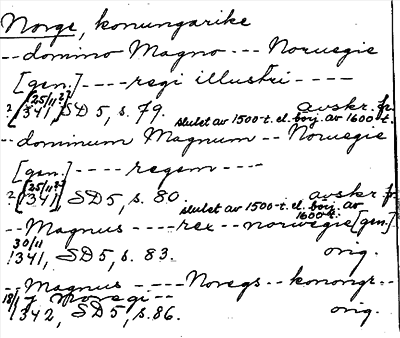 Norge, konungarike
--domino Magno --- Noruegie
[gen.] ---- regi illustri -----
?[25/11 ?]
1341, SD 5, s. 79. avskr. fr.
slutet av 1500-t. el. börj. av 1600-t.
--dominum Magnum -- Norwegie
[gen.] ---- regem ----
?[25/11 ?]
1341, SD 5, s. 80. avskr. fr.
slutet av 1500-t. el. börj. av
1600-t.
--Magnus ---- rex -- norwegie [gen.]
30/11
1341, SD 5, s. 83. orig.
--Magnus ---- Noregs -- konongr --
j Noregi --
18/1
1342, SD 5, s. 86. orig.